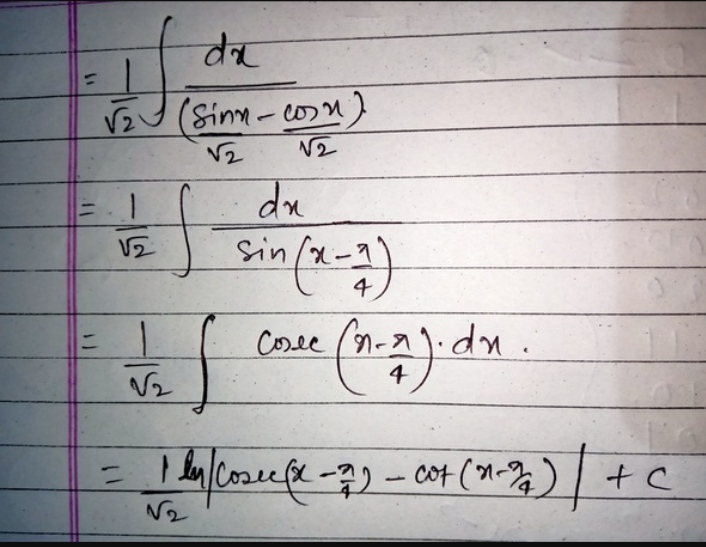 = 1/√2 ∫ dx / (sinx/√2 - cosx/√2)
= 1/√2 ∫ dx / sin(x - π/4)
= 1/√2 ∫ cosec (x - π/4) · dx .
= 1/√2 ln|cosec(x - π/4) - cot(x - π/4)| + c